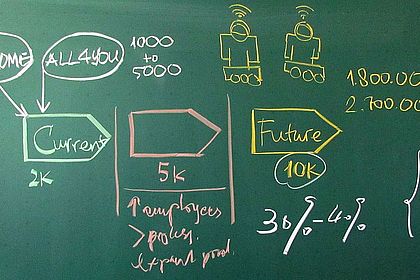 OME
ALL4YOU
1000
to
5000
1.800.00
2.700.00
Current
Future
2K
5K
10K
↑ employees
30%-40%